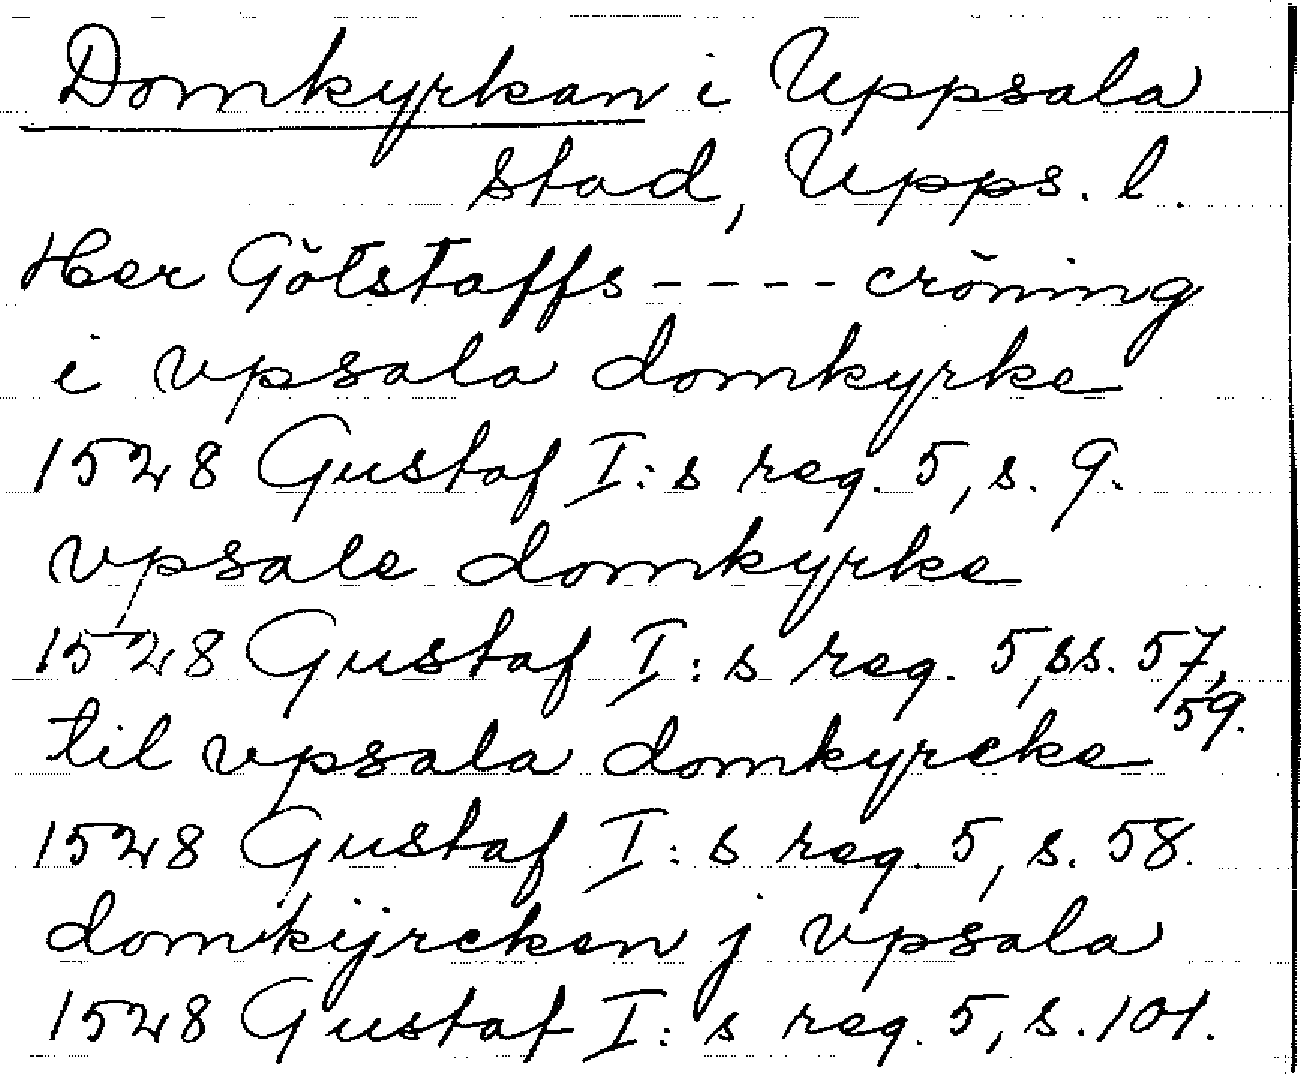 Domkyrkan i Uppsala
stad, Upps. l.
Her Götstaffs ---- cröning
i vpsala domkyrke
1528 Gustaf I:s reg. 5, s. 9.
vpsale domkyrke
1528 Gustaf I:s reg. 5, ss. 57,
59.
til vpsala domkyrcke
1528 Gustaf I:s reg. 5, s. 58.
domkÿrcken j vpsala
1528 Gustaf I:s reg. 5, s. 101.